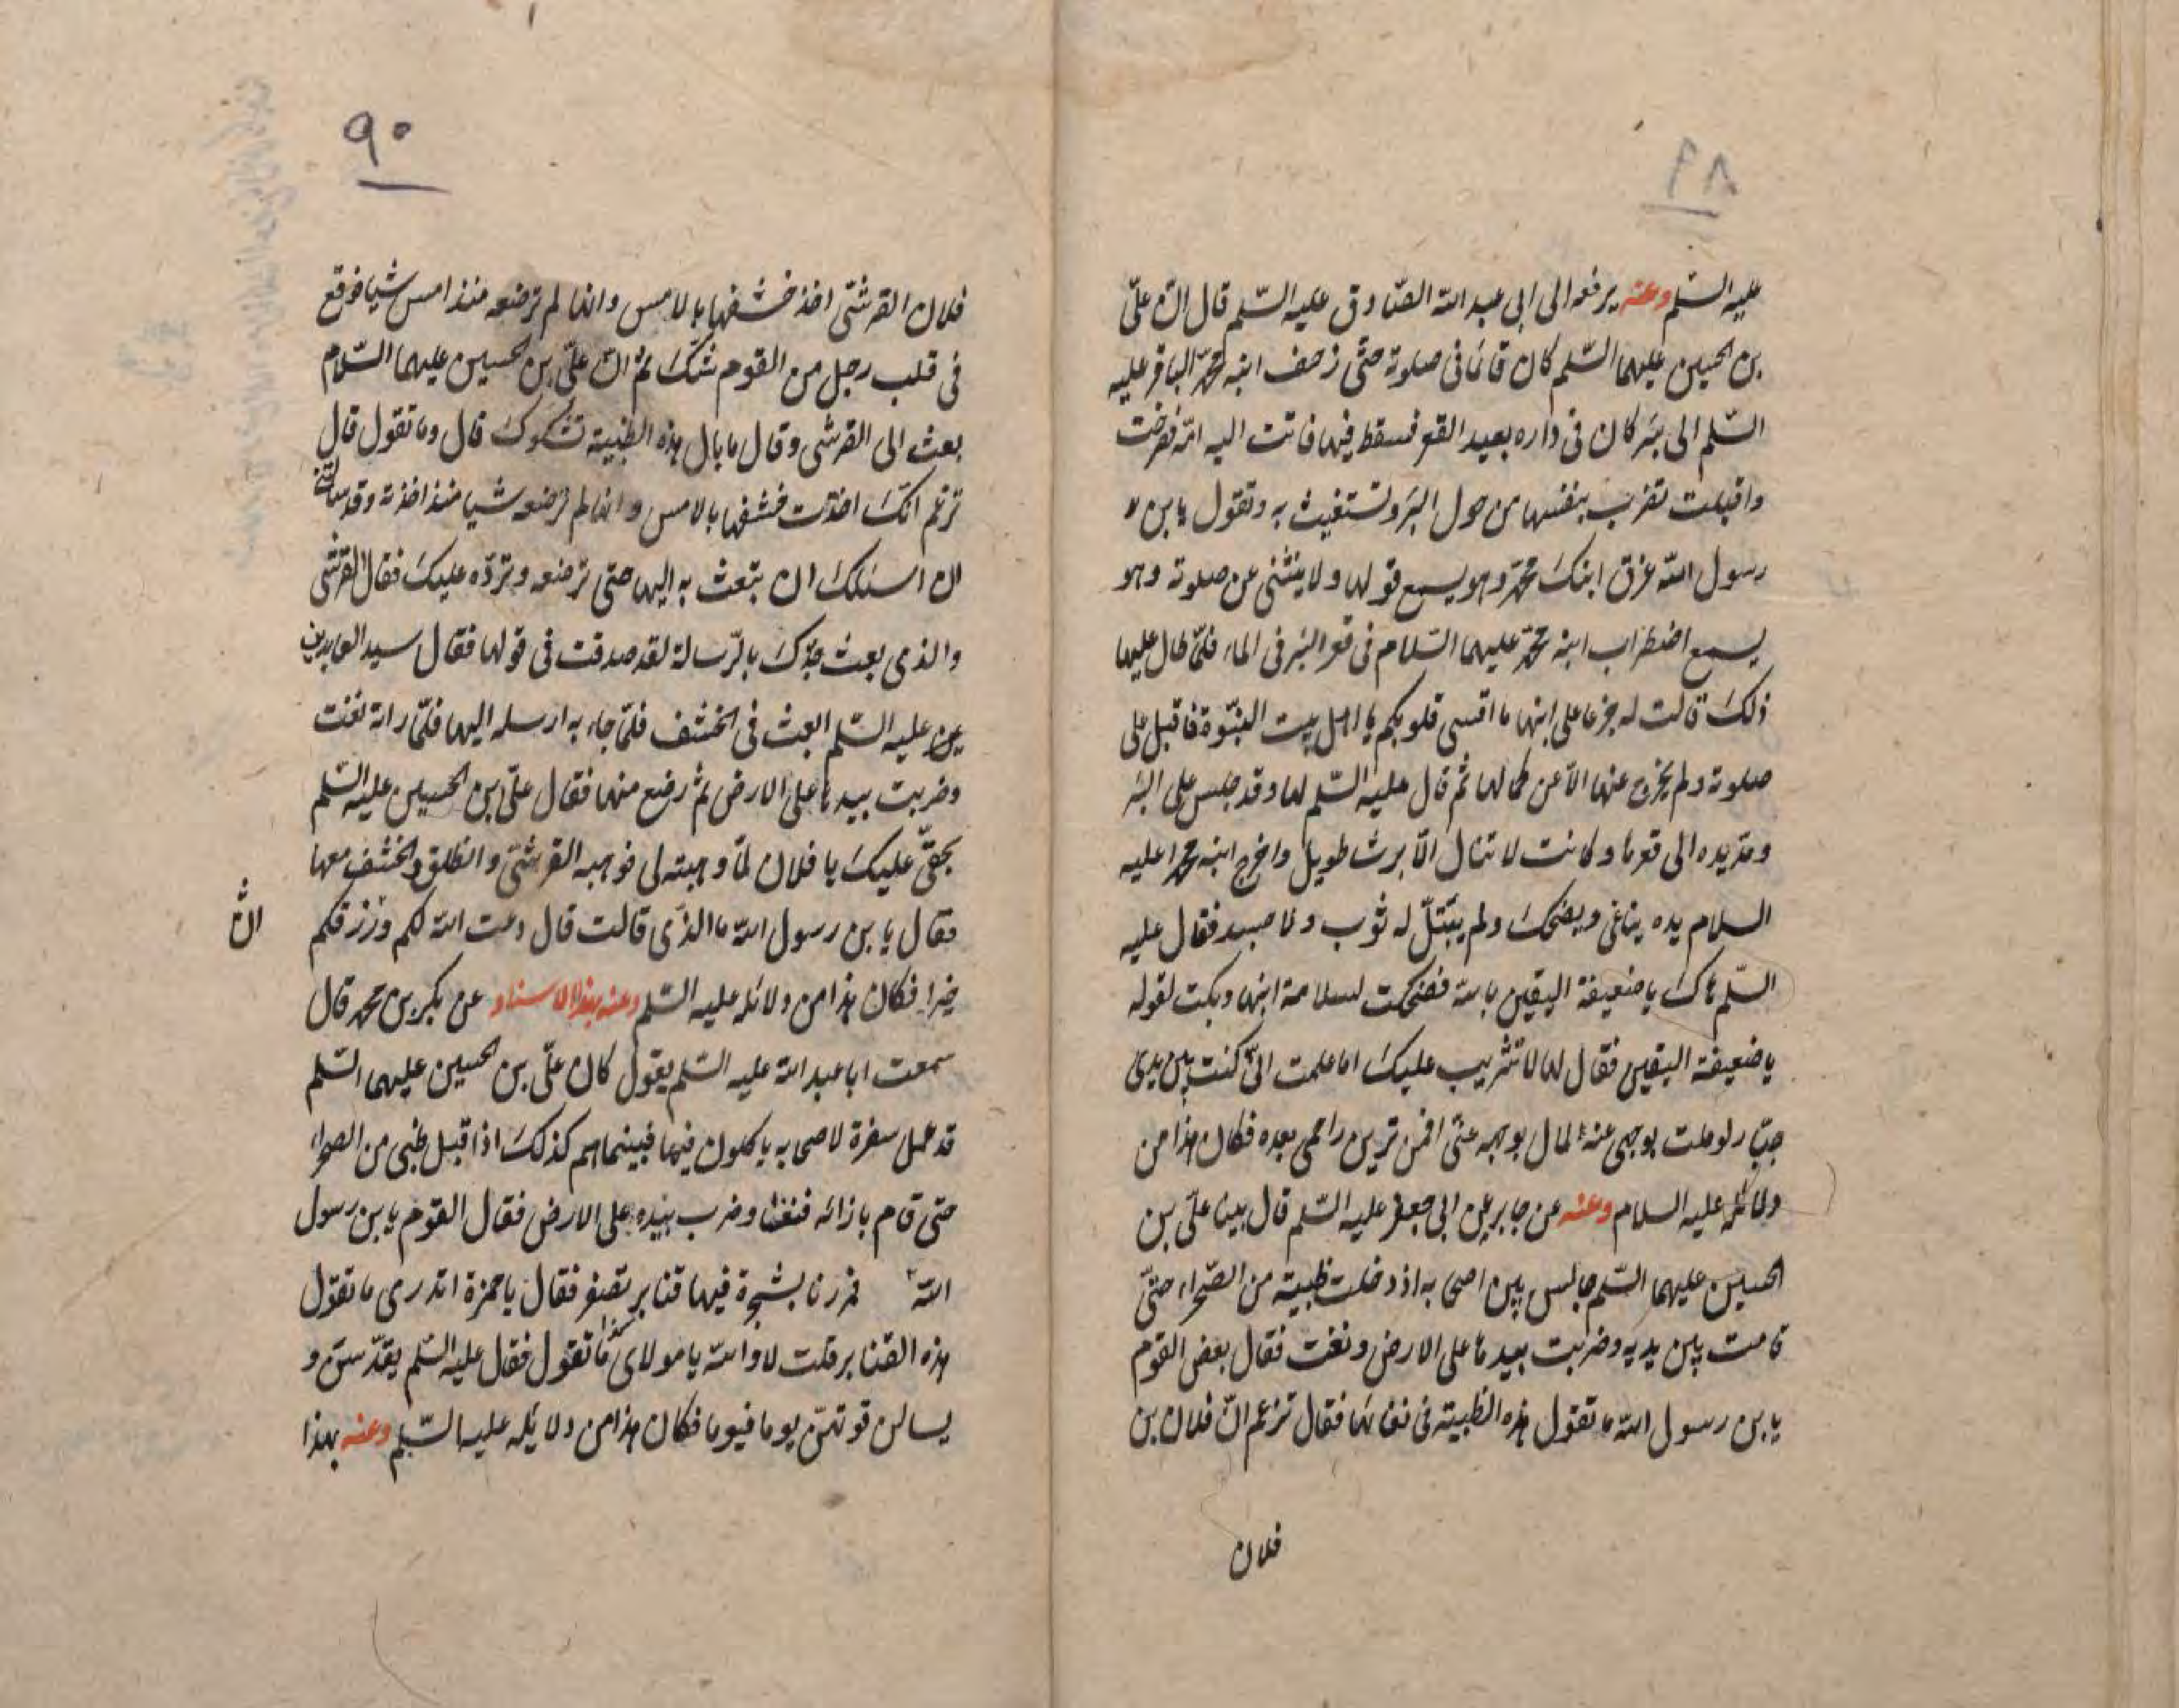 ٨٩
عليه السّلم وعنه يرفعه الى ابى عبد الله الصّادق عليه السّلم قال انّ علىّ
بن الحسين عليهما السّلم كان قائما فى صلوته حتّى زحف ابنه محمّد الباقر عليه
السّلم الى بئر كان فى داره بعيد القعر فسقط فيها فاتت اليه امّه فصرخت
واقبلت تضرب بنفسها من حول البئر وتستغيث به وتقول يا بن
رسول الله غرق ابنك محمّد وهو يسمع قولها ولا ينثنى عن صلوته وهو
يسمع اضطراب ابنه محمّد عليهما السّلام فى قعر البئر فى الماء فلمّا طال عليها
ذلك قالت له جزعا على ابنها ما اقسى قلوبكم يا اهل بيت النبّوة فاقبل على
صلوته ولم يخرج عنها الاّ عن كمالها ثم قال عليه السّلم لها وقد جلس على البئر
ومدّ يده الى قعرها وكانت لا تنال الاّ برشا طويل واخرج ابنه محمدا عليه
السلام بيده يناغى ويضحك ولم يبتلّ له ثوب ولا جسد فقال عليه
السّلم هاك يا ضعيفة اليقين بالله فضحكت لسلامة ابنها وبكت لقوله
يا ضعيفة اليقين فقال لها لا تثريب عليك اما علمت انّى كنت بين يدى
جبّار لو ملت بوجهى عنه لمال بوجهه عنّى افمن ترين راحمى بعده فكان هذا من
دلائله عليه السلام وعنه عن جابر عن ابى جعفر عليه السّلم قال بينا علىّ بن
الحسين عليهما السّلم جالس بين اصحابه اذ دخلت ظبية من الصّحراء حتىّ
قامت بين يديه وضربت بيدها على الارض ونغت فقال بعض القوم
يا بن رسول الله ما تقول هذه الظبية فى نغائها فقال تزعم انّ فلان بن
فلان
٩٠
فلان القرشىّ اخذ خشفها بالامس وانها لم ترضعه منذ امس شيا فوقع
فى قلب رجل من القوم شكّ ثم انّ علىّ بن الحسين عليهما السّلام
بعث الى القرشى وقال ما بال هذه الظبية تشكوك قال وما تقول قال
تزعم انّك اخذت خشفها بالامس وانها لم ترضعه شيا منذ اخذته وقد سالتنى
ان اسئلك ان تبعث به اليها حتى ترضعه وتردّه عليك فقال القرشى
والذى بعث جدّك بالرّسالة لقد صدقت فى قولها فقال سيد العابدين
عليه السّلم ابعث فى الخشف فلمّا جاء به ارسله اليها فلمّا راته نغت
وضربت بيدها على الارض ثم رضع منها فقال علىّ بن الحسين عليه السّلم
بحقّى عليك يا فلان لمّا وهبته لى فوهبه القرشىّ وانطلق والخشف معها
فقال يا بن رسول الله ما الذّى قالت قال دعت الله لكم ورزقكم
خيرا فكان هذا من دلائله عليه السّلم وعنه بهذا الاسناد عن بكر بن محمد قال
سمعت ابا عبد الله عليه السّلم يقول كان علىّ بن الحسين عليهما السّلم
قد عمل سفرة لاصحابه ياكلون فيها فبينما هم كذلك اذ اقبل ظبى من الصحراء
حتى قام بازائه فنغا وضرب بيده على الارض فقال القوم يا بن رسول
الله فمررنا بشجرة فيها قنابر تصفر فقال يا حمزة اتدرى ما تقول
هذه القنابر قلت لا والله يا مولاى ما تقول فقال عليه السّلم يقدّسنّ و
يسالن قوتهنّ يوما فيوما فكان هذا من دلائله عليه السّلم وعنه بهذا